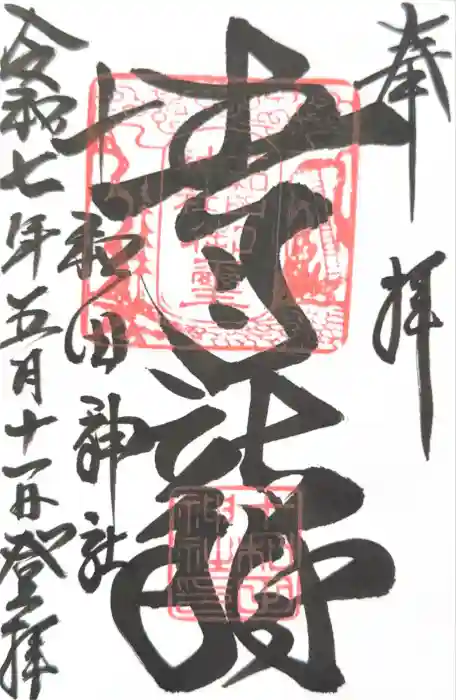 奉拝
青龍
十和田神社
令和七年五月十一日登拝